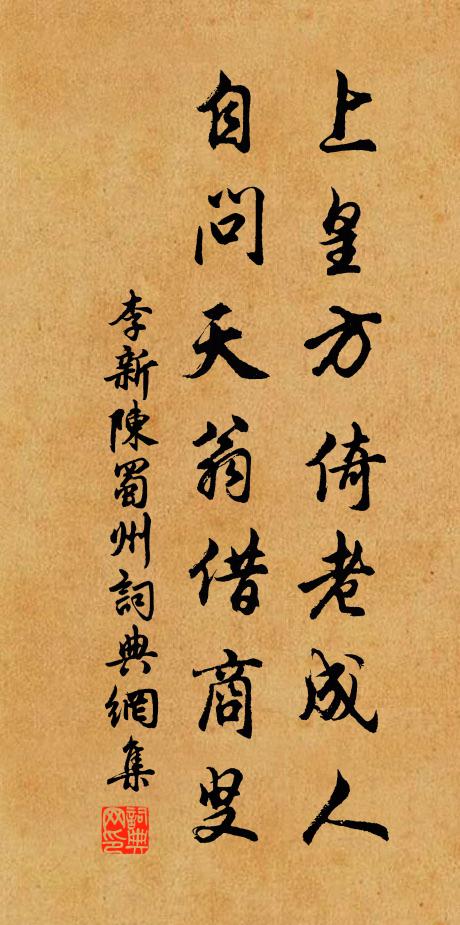 上皇方倚老成人
自問天翁借商叟
李新陳蜀州詞典網集
詞典網印